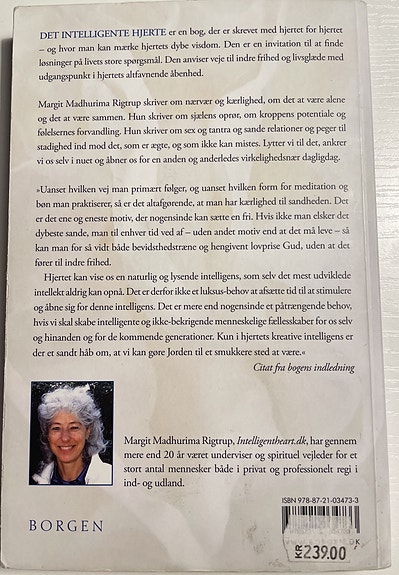 DET INTELLIGENTE HJERTE er en bog, der er skrevet med hjertet for hjertet
– og hvor man kan mærke hjertets dybe visdom. Den er en invitation til at finde
løsninger på livets store spørgsmål. Den anviser veje til indre frihed og livsglæde med
udgangspunkt i hjertets altfavnende åbenhed.
Margit Madhurima Rigtrup skriver om nærvær og kærlighed, om det at være alene
og det at være sammen. Hun skriver om sjælens oprør, om kroppens potentiale og
følelsernes forvandling. Hun skriver om sex og tantra og sande relationer og peger til
stadighed ind mod det, som er ægte, og som ikke kan mistes. Lytter vi til det, ankrer
vi os selv i nuet og åbner os for en anden og anderledes virkelighedsnær dagligdag.
»Uanset hvilken vej man primært følger, og uanset hvilken form for meditation og
bøn man praktiserer, så er det altafgørende, at man har kærlighed til sandheden. Det
er det ene og eneste motiv, der nogensinde kan sætte en fri. Hvis ikke man elsker det
dybeste sande, man til enhver tid ved af – uden andet motiv end at det må leve – så
kan man for så vidt både bevidsthedstræne og hengivent lovprise Gud, uden at det
fører til indre frihed.
Hjertet kan vise os en naturlig og lysende intelligens, som selv det mest udviklede
intellekt aldrig kan opnå. Det er derfor ikke et luksus-behov at afsætte tid til at stimulere
og åbne sig for denne intelligens. Det er mere end nogensinde et påtrængende behov,
hvis vi skal skabe intelligente og ikke-bekrigende menneskelige fællesskaber for os selv
og hinanden og for de kommende generationer. Kun i hjertets kreative intelligens er
der et sandt håb om, at vi kan gøre Jorden til et smukkere sted at være.«
Citat fra bogens indledning
Margit Madhurima Rigtrup, Intelligentheart.dk, har gennem
mere end 20 år været underviser og spirituel vejleder for et
stort antal mennesker både i privat og professionelt regi i
ind- og udland.
ISBN 978-87-21-03473-3
BORGEN
KR 239.00